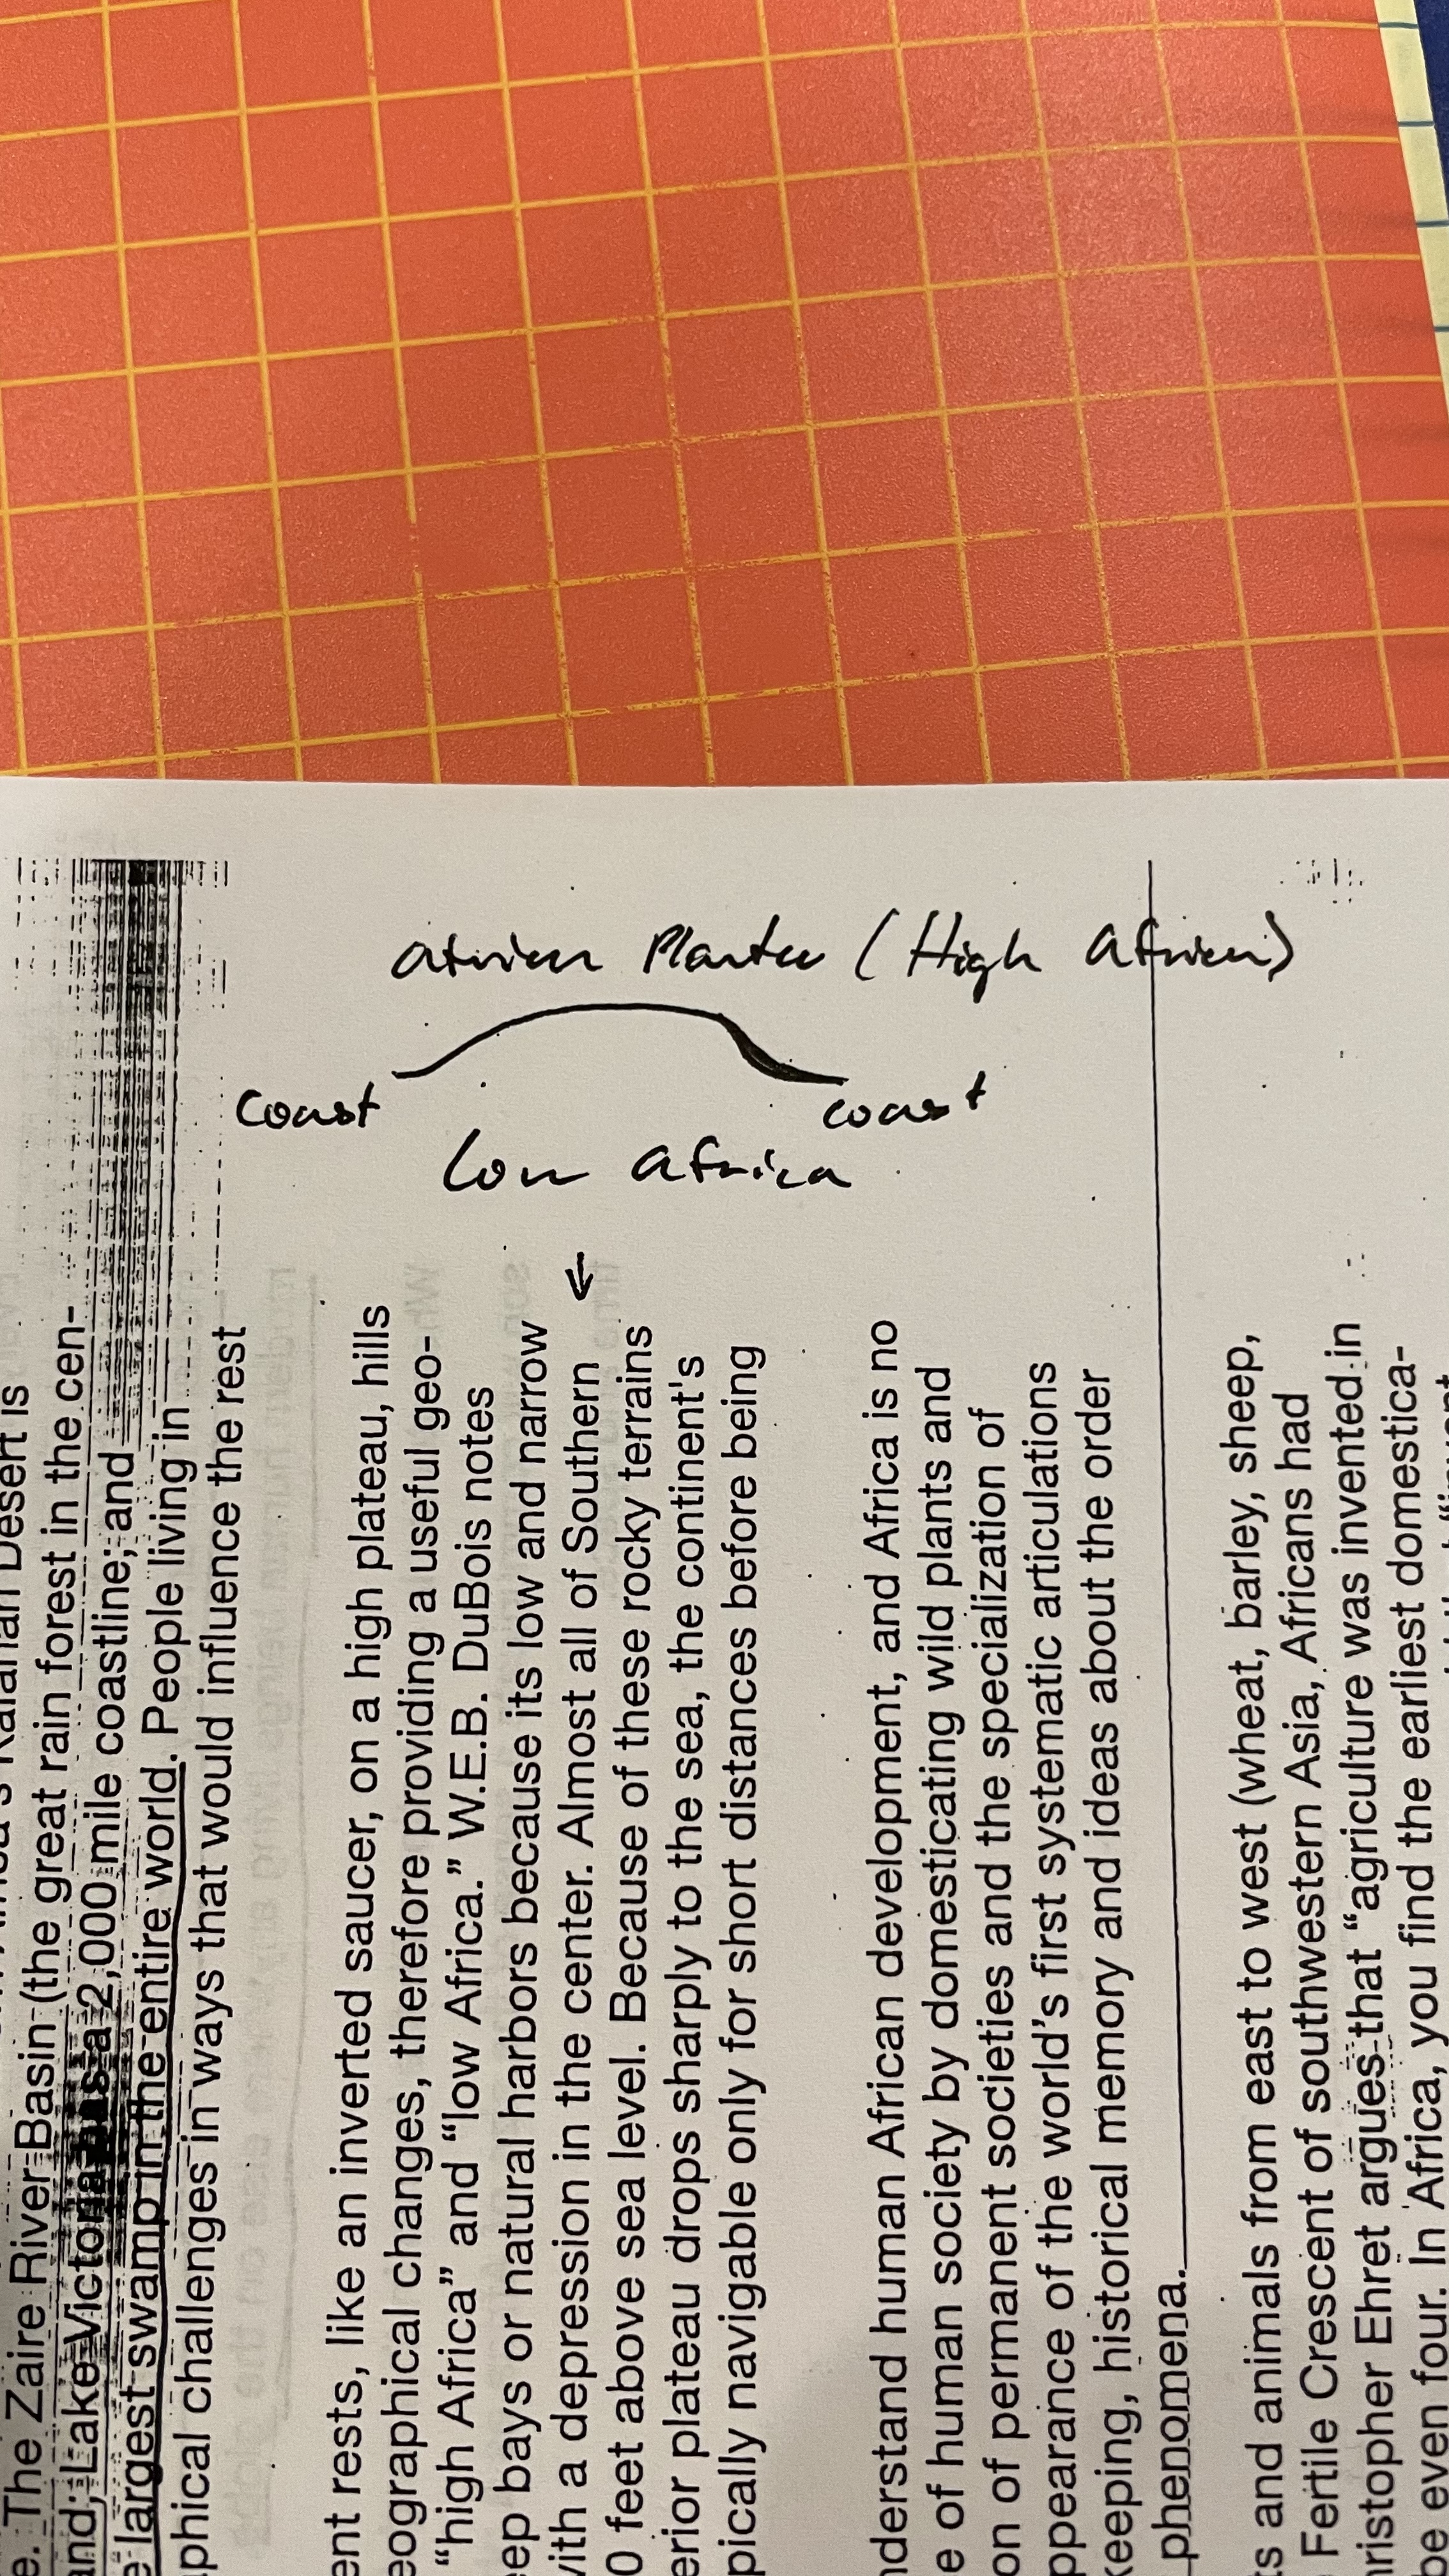 African Plantee (High African)
coast coast
low africa
←
Kalahari Desert is
e. The Zaire River Basin (the great rain forest in the cen-
and; Lake Victoria has a 2,000 mile coastline; and
largest swamp in the entire world. People living in
phical challenges in ways that would influence the rest
ent rests, like an inverted saucer, on a high plateau, hills
eographical changes, therefore providing a useful geo-
"high Africa" and "low Africa." W.E.B. DuBois notes
eep bays or natural harbors because its low and narrow
with a depression in the center. Almost all of Southern
0 feet above sea level. Because of these rocky terrains
erior plateau drops sharply to the sea, the continent's
pically navigable only for short distances before being
nderstand human African development, and Africa is no
e of human society by domesticating wild plants and
on of permanent societies and the specialization of
ppearance of the world's first systematic articulations
keeping, historical memory and ideas about the order
phenomena.
ts and animals from east to west (wheat, barley, sheep,
Fertile Crescent of southwestern Asia, Africans had
ristopher Ehret argues that "agriculture was invented in
be even four. In Africa, you find the earliest domestica-